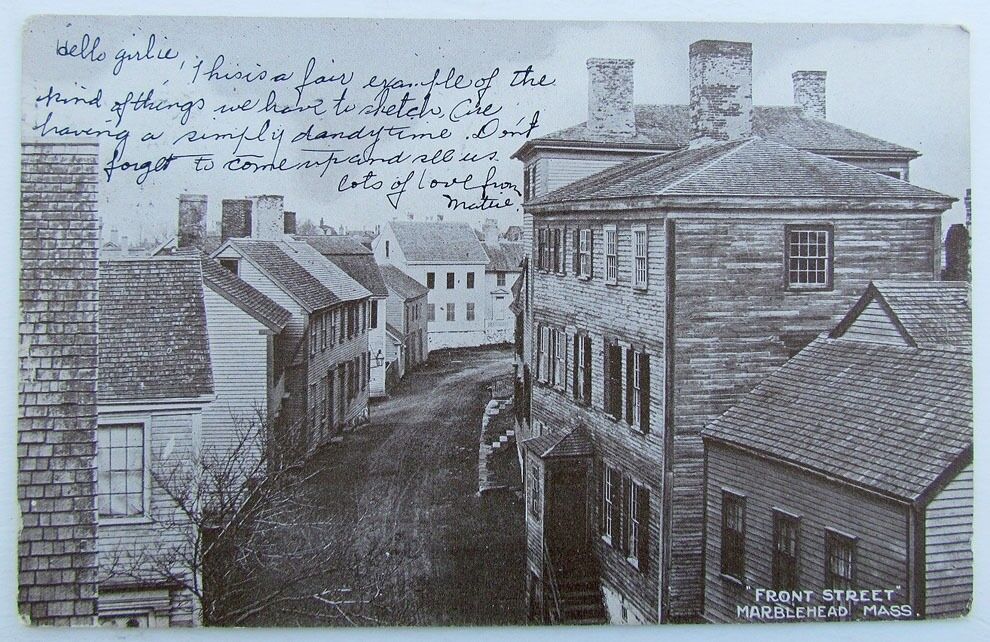 Hello girlie, This is a fair example of the
kind of things we have to sketch, Are
having a simply dandy time. Don't
forget to come up and see us.
lots of love from
Mattie.
"FRONT STREET"
MARBLEHEAD MASS.